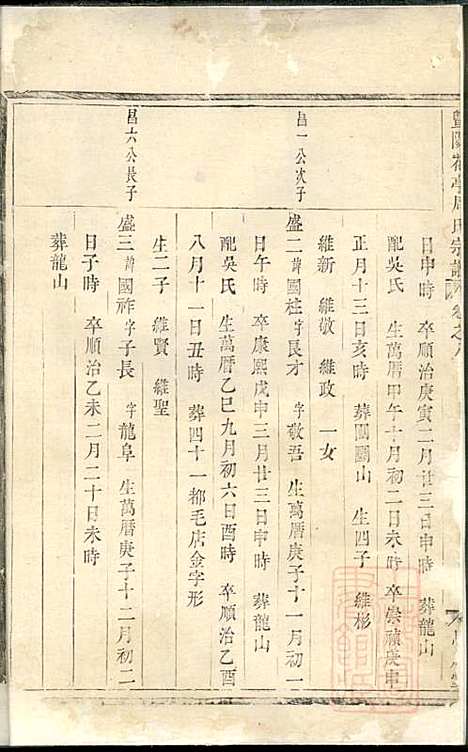 暨陽花亭周氏宗譜 卷之八
日申時 卒順治庚寅二月廿三日申時 葬龍山
配吳氏 生萬曆甲午十月初二日未時 卒崇禎庚申
正月十三日亥時 葬關山 生四子 維彬
維新 維敬 維政 一女
昌一公次子
盛二 諱國柱 字良才 字敬吾 生萬曆庚子十一月初一
日午時 卒康熙戊申三月廿三日申時 葬龍山
配吳氏 生萬曆乙巳九月初六日酉時 卒順治乙酉
八月十一日丑時 葬四十一都毛店金字形
生二子 維賢 維聖
昌六公長子
盛三 諱國祚 字子長 字龍阜 生萬曆庚子十二月初二
日子時 卒順治乙未二月二十日未時
葬龍山